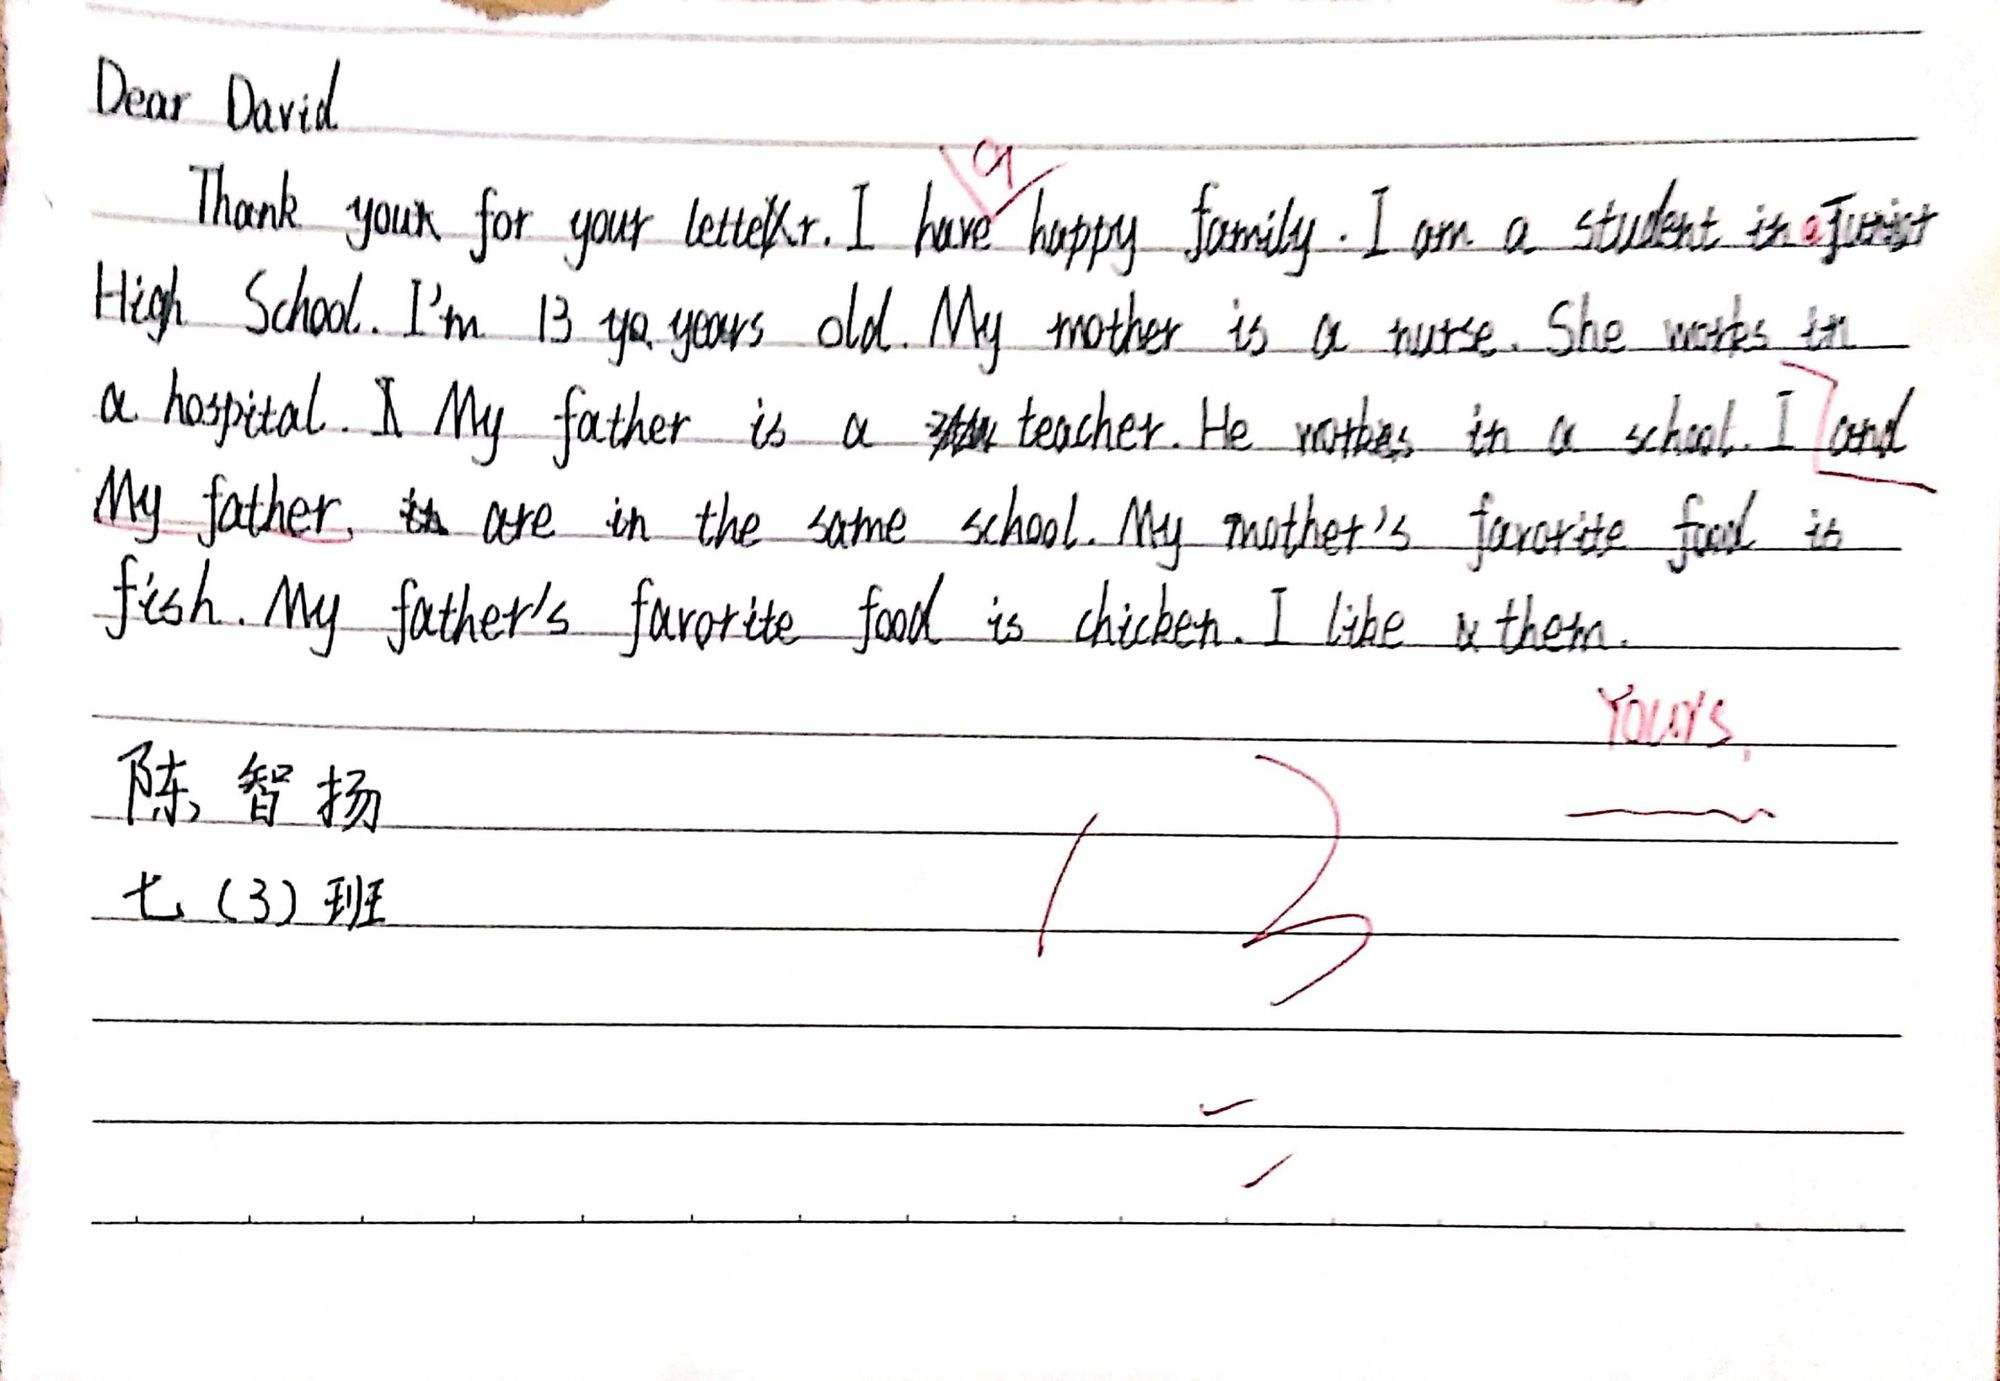 Dear David
a
Thank your for your letter. I have happy family. I am a student in a Junior
High School. I'm 13 ya years old. My mother is a nurse. She works in
a hospital. I My father is a teacher. He works in a school. I and
My father, in are in the same school. My mother's favorite food is
fish. My father's favorite food is chicken. I like a them.
Yours,
陈智扬
七（3）班
13